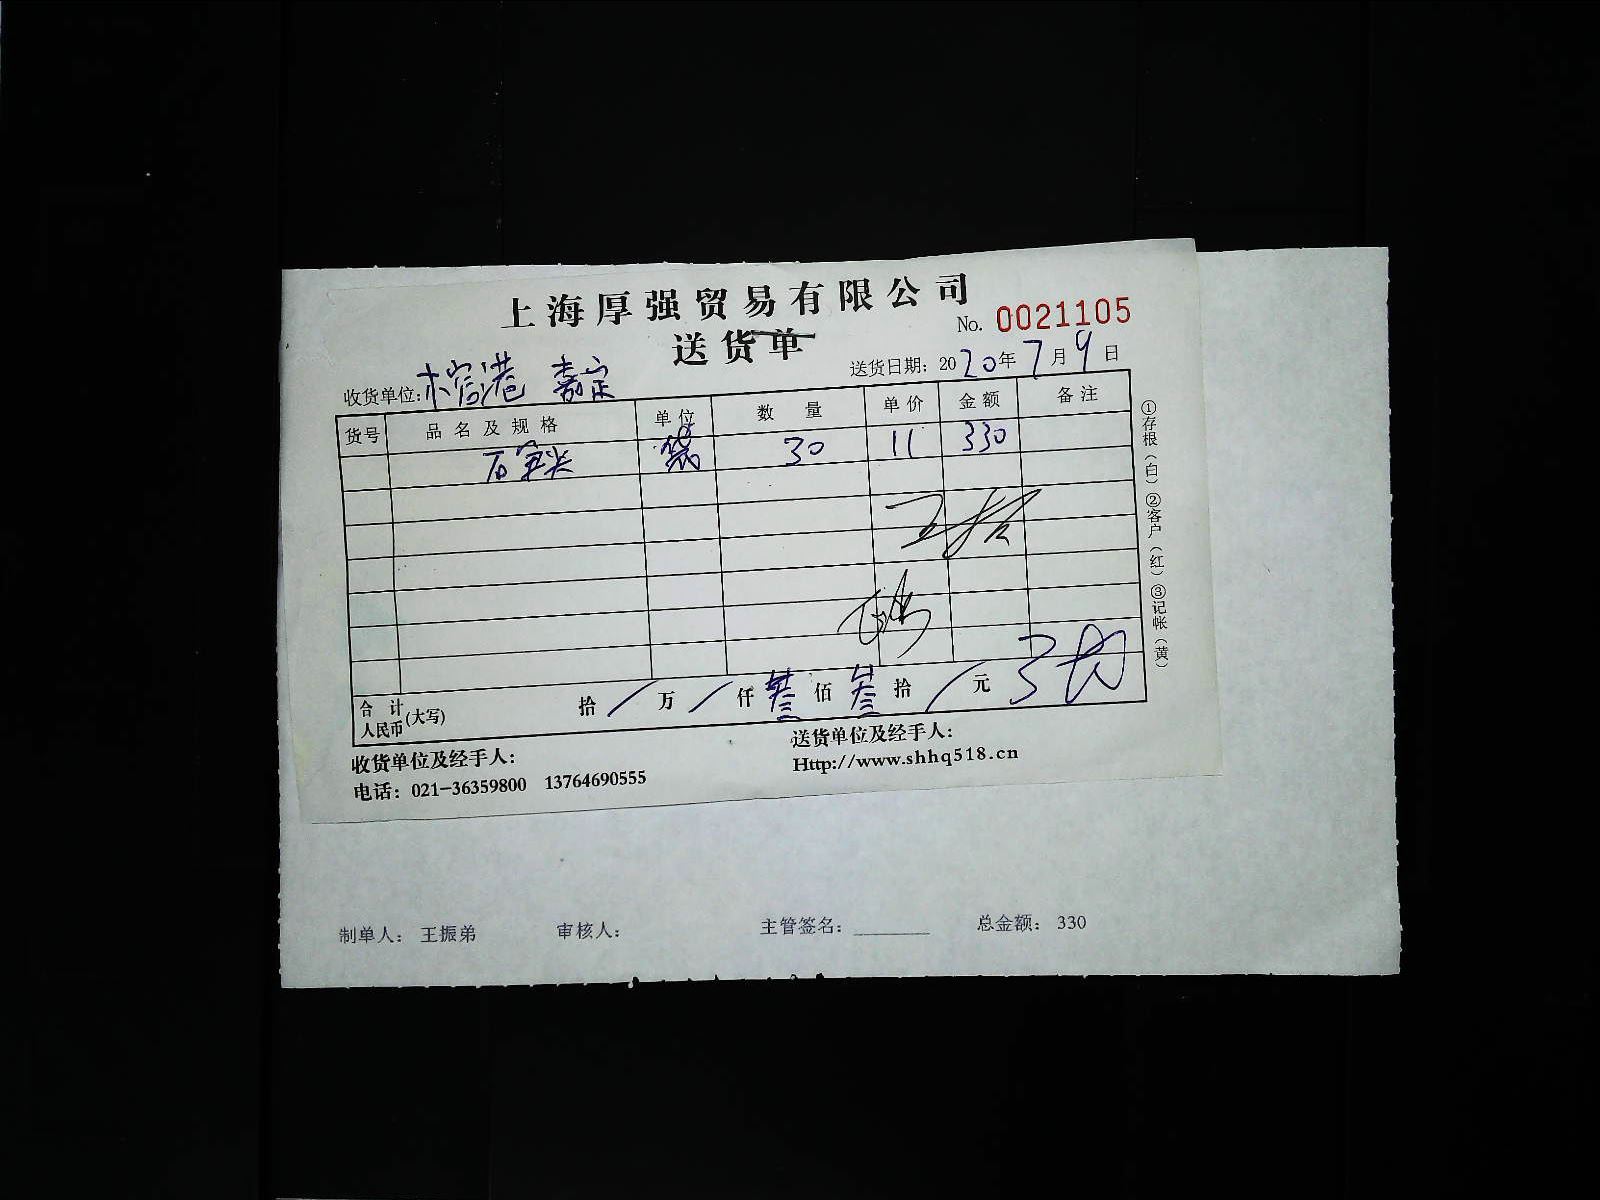 上海厚强贸易有限公司
No. 0021105
送货单
收货单位: 嘉定
送货日期: 2020年7月9日
货号 品名及规格 单位 数量 单价 金额 备注
袋 30 11 330
合计人民币(大写) 拾 / 万 / 仟 叁 佰 叁 拾 / 元
收货单位及经手人:
送货单位及经手人:
电话: 021-36359800 13764690555
Http://www.shhq518.cn
①存根(白) ②客户(红) ③记帐(黄)
制单人: 王振弟 审核人: 主管签名: ________ 总金额: 330